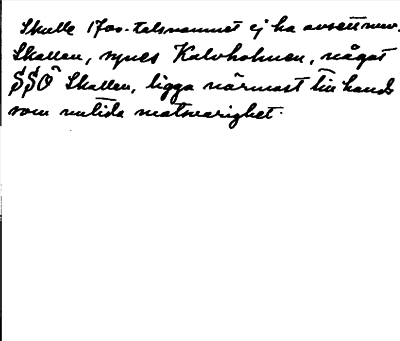 Skulle 1700-talsnamnet ej ha avsett nuv.
Skallen, synes Kalvholmen, något
SSO Skallen, ligga närmast till hands
som nutida motsvarighet.